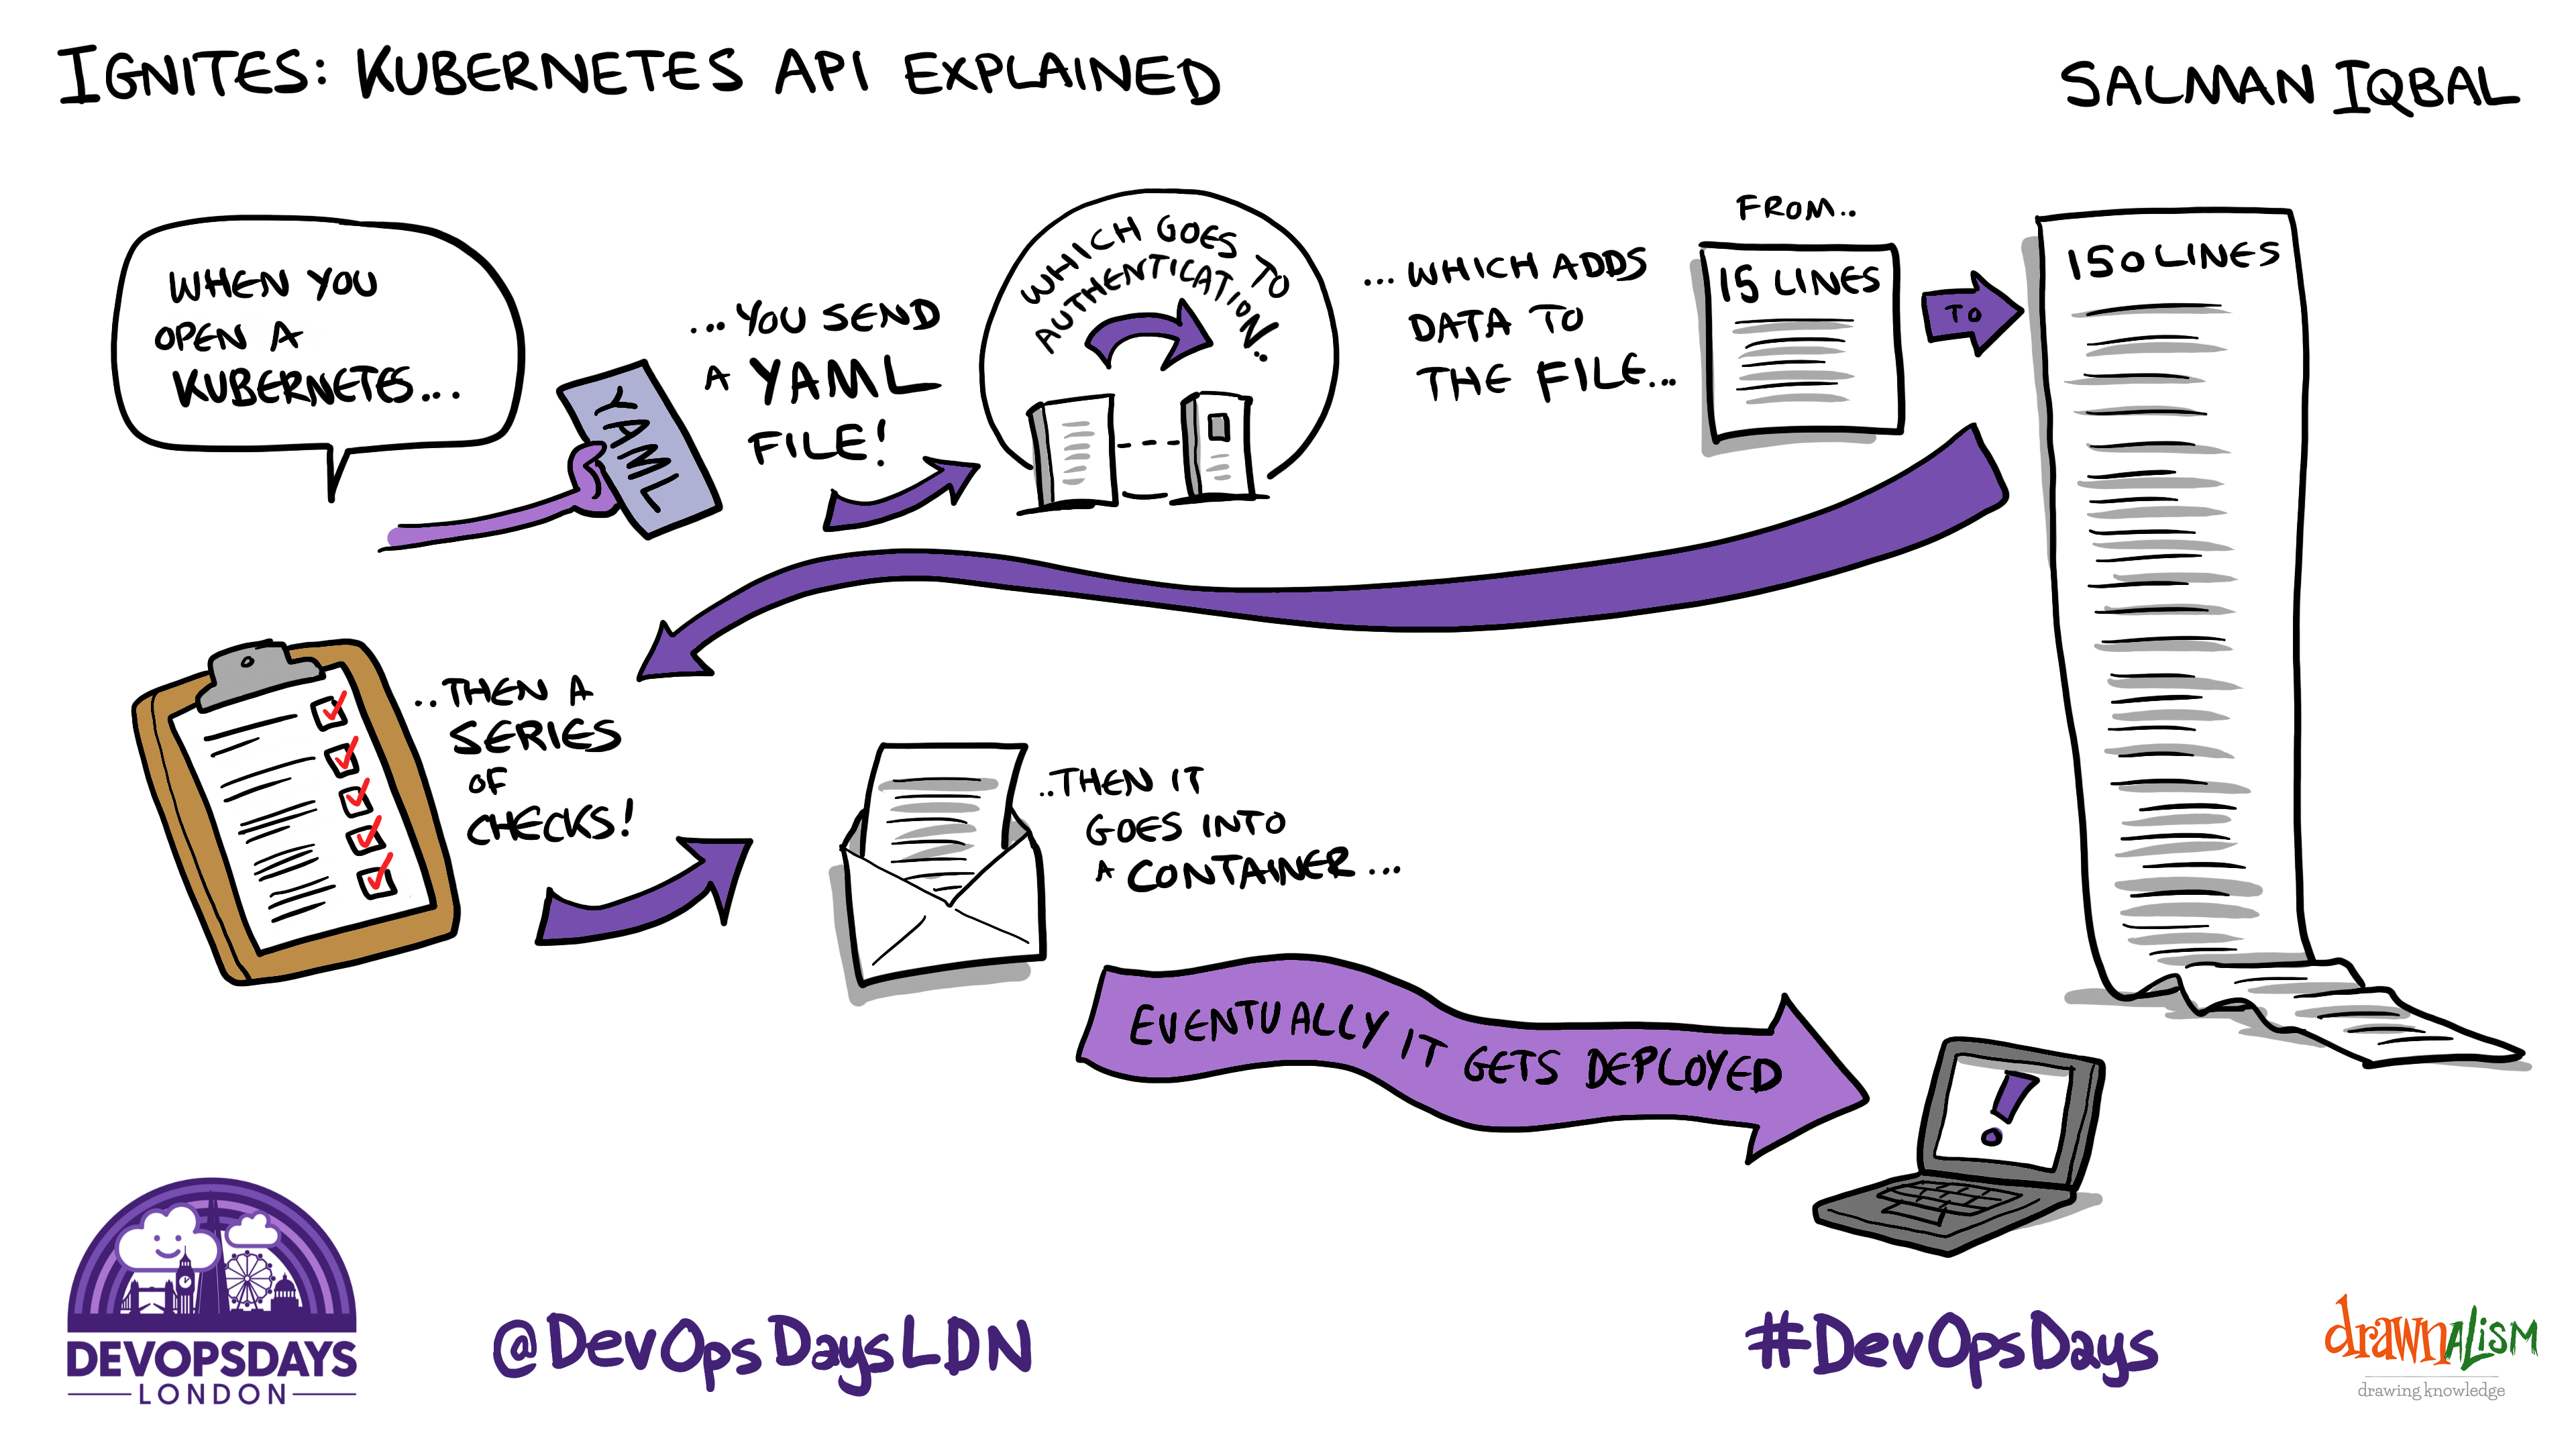 IGNITES: KUBERNETES API EXPLAINED
SALMAN IQBAL
WHEN YOU
OPEN A
KUBERNETES...
YAML
...YOU SEND
A YAML
FILE!
WHICH GOES TO
AUTHENTICATION..
...WHICH ADDS
DATA TO
THE FILE...
FROM..
15 LINES
TO
150 LINES
..THEN A
SERIES
OF
CHECKS!
..THEN IT
GOES INTO
A CONTAINER...
EVENTUALLY IT GETS DEPLOYED
!
DEVOPSDAYS
LONDON
@DevOpsDaysLDN
#DevOpsDays
drawnALiSM
drawing knowledge